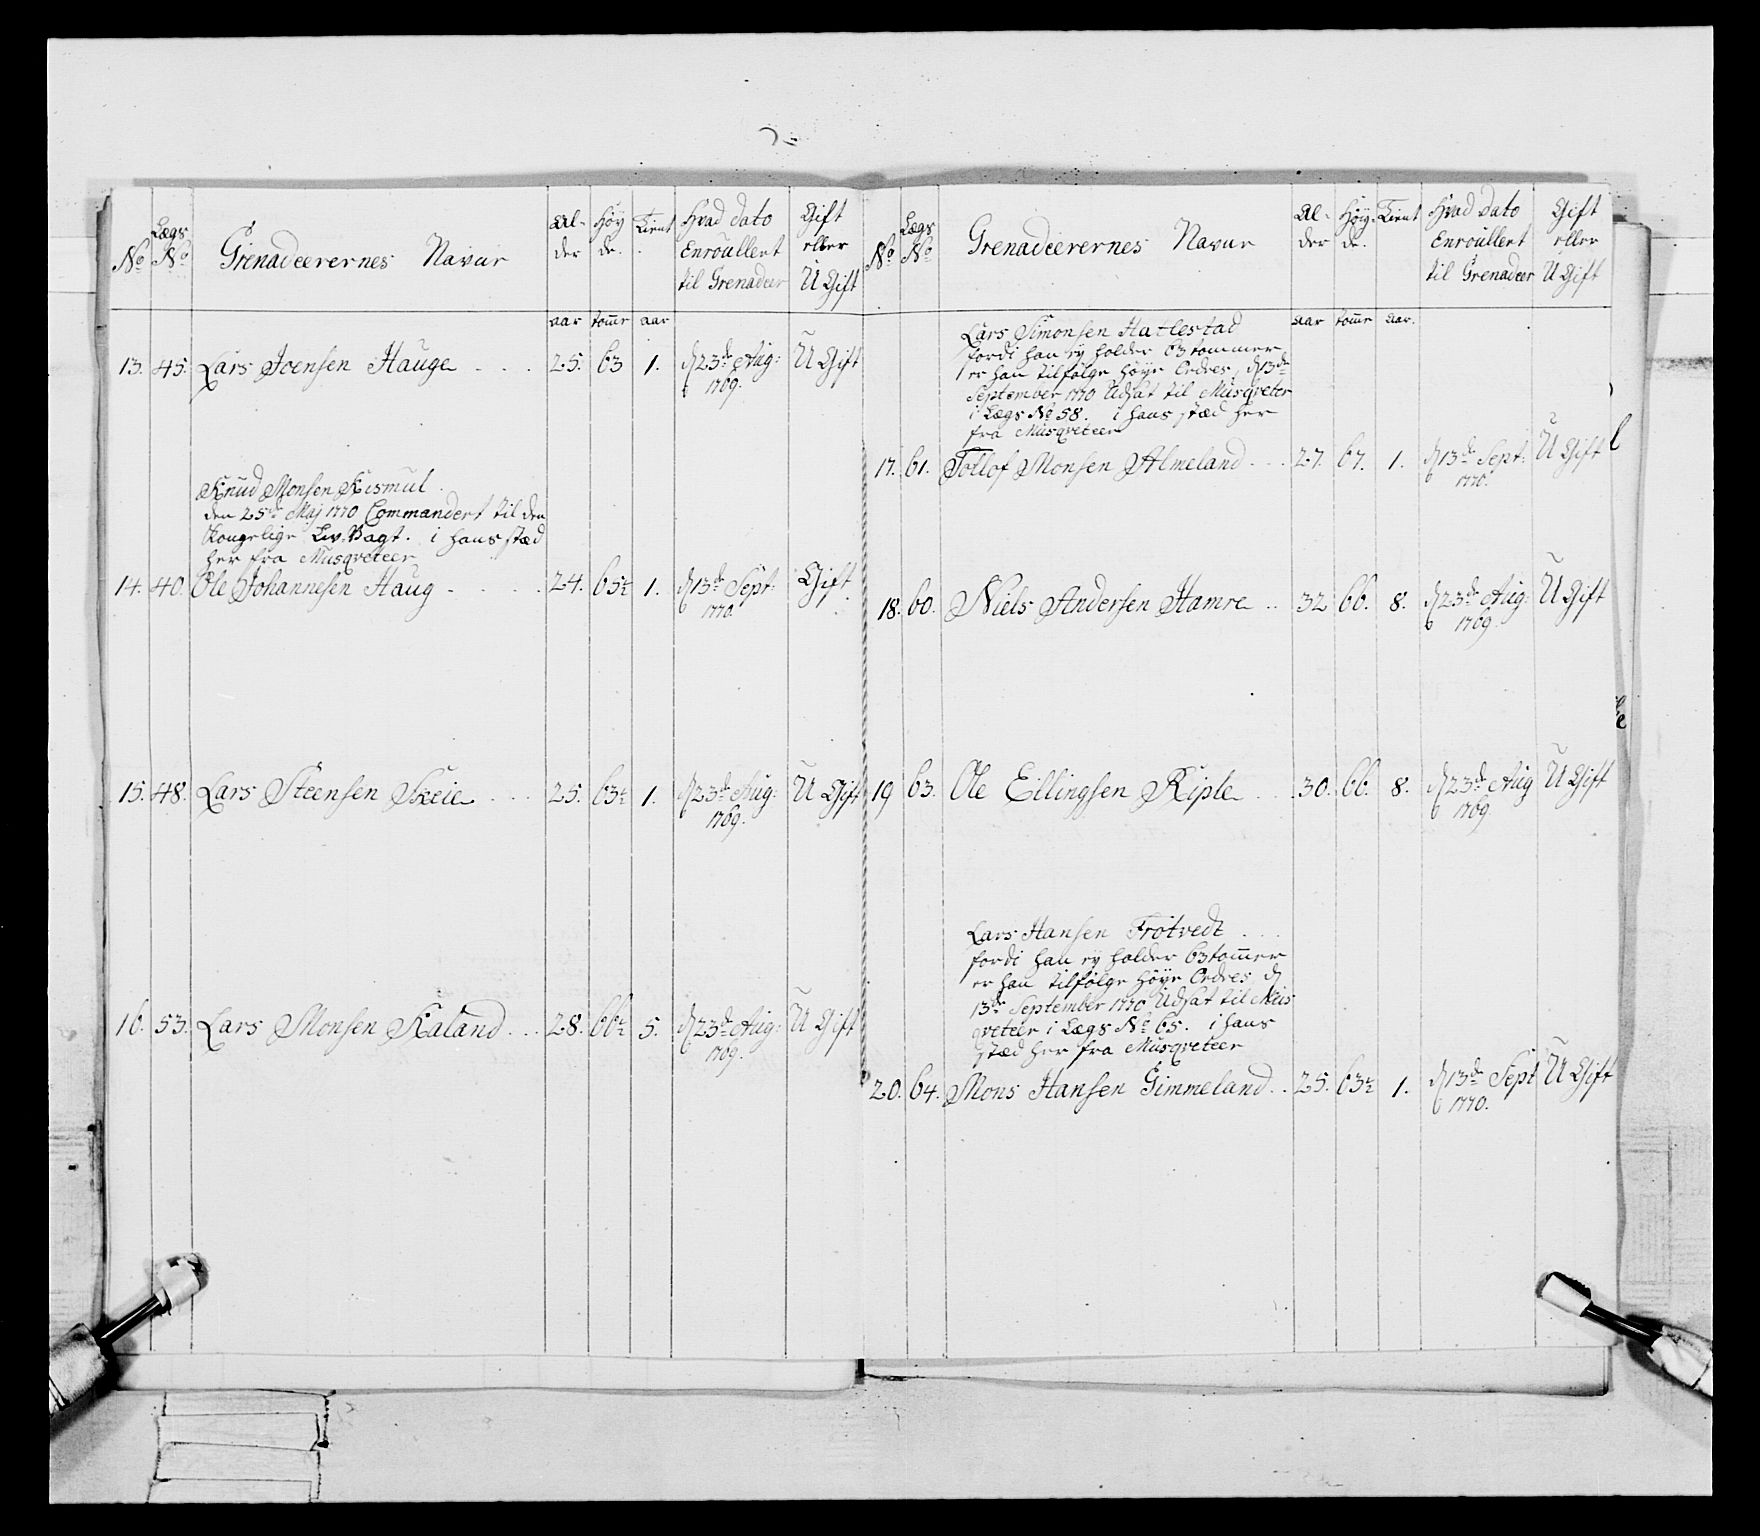 No
Lægs No
Grenadeerernes Navne
Al-
der
Høy
de.
Tient
Hvad dato
Enroullert
til Grenadeer
Gift
eller
U Gift
aar tomr aar
13. 45. Lars Joensen Hauge . . . 25. 63 1. d 23de Aug: U Gift
1769.
Knud Monsen Kismul.
den 25de Maj 1770 Commandert til den
Kongelige Liv-Vagt. i hans stæd
her fra Musqveteer
14. 40. Ole Johannesen Haug . . . . . 24. 65½ 1. d 13de Sept: Gift
1770.
15. 48. Lars Steensen Skeie . . . 25. 63½ 1. d 23de Aug: U Gift
1769.
16. 53. Lars Monsen Kaland . . . 28. 66½ 5. d 23de Aug: U Gift
1769.
No
Lægs No
Grenadeerernes Navne
Al-
der
Høy-
de.
Tient
Hvad dato
Enroullert
til Grenadeer
Gift
eller
U Gift
aar tomr aar.
Lars Simonsen Hatlestad
fordi han ey holder 63 tommer
er han tilfølge høye Ordres, d 13de
September 1770 Udsat til Musqveter
i Lægs No 58. i hans stæd her
fra Musqveteer
17. 61. Tollof Monsen Almeland . . . 27. 67. 1. d 13de Sept: U Gift
1770.
18. 60. Niels Andersen Hamre . . 32 66. 8. d 23de Aug: U Gift
1769
19 63. Ole Eillingsen Riple . . 30. 66. 8. d 23de Aug U Gift
1769.
Lars Hansen Trötvedt . . .
fordi han ey holder 63 tommer
er han tilfølge høye Ordres d
13de September 1770 Udsat til Mus
qveteer i Lægs No 65. i hans
stæd her fra Musqveteer
20. 64. Mons Hansen Gimmeland . . 25. 63½ 1. d 13de Sept U Gift
1770.